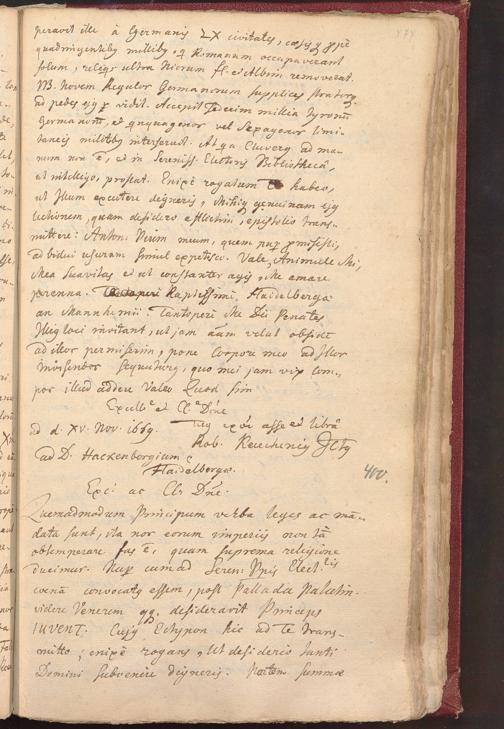 peravit ille à Germanis LX civitates, cæsis
quadringentis millib,, q Romanam occupaverant
solum, reliqs ultra Nicrum fl. et Albim removerat.
NB. Novem Regulor Germanorum supplices stratosq,
ad pedes ejq vidit. Accepit sedecim millia Tyronũ
Germanorũ, et quagenor vel sexagenor limi-
taneis militib interserult. Alqa Cluverq ad ma-
num non ē, et in Sereniss. Electoris Bibliothecâ,
ut intelligo, prostat. Enixè rogatum habeo,
ut Illum excutere digneris, Mihiq genuinam ejq
lectionem, quam desidero, epistolio trans-
mittere: Anton. Verum meum, quem nup pmisisti,
ad bidui usuram simul expetisco. Vale, Animule Mi,
Mea Suavitas et ut constanter agis, Me amare
perenna. Raptissimè, Haidelbergæ
an Mannhemii: Tantoperè Me Dii Penates
Illiq loci invitant, ut jam aum velut obsidē
ad illos permiserim, pone corpore meo ad Illos
quo mei jam vix tem-
por illud addere Valeo Quod sim
Excell.ᵉ et Cl.ᵃ Dn̄e
ad d. XV. Nov. 1669. Tuq asse et librâ
Rob. Keuchenis JCtq
ad D. Hackenbergium
Haidelbergæ.
400.
Exc. ac Cl. Dn̄e.
Quemadmodum Principum verba leges ac man-
data sunt, ita nos eorum imperiis
obtemperare fas ē, quam suprema religione
ducimur. Nup cum ad Seren. Ppis Elect.ris
coenā convocatq essem, post Pallada Palatin.
videre Venerem qq desideravit Princeps
IUVENT. Cujq Ectypon hic ad te trans-
mitto; enixè rogans, Ut desiderio tanti
Domini subvenire digneris. Noctem summæ